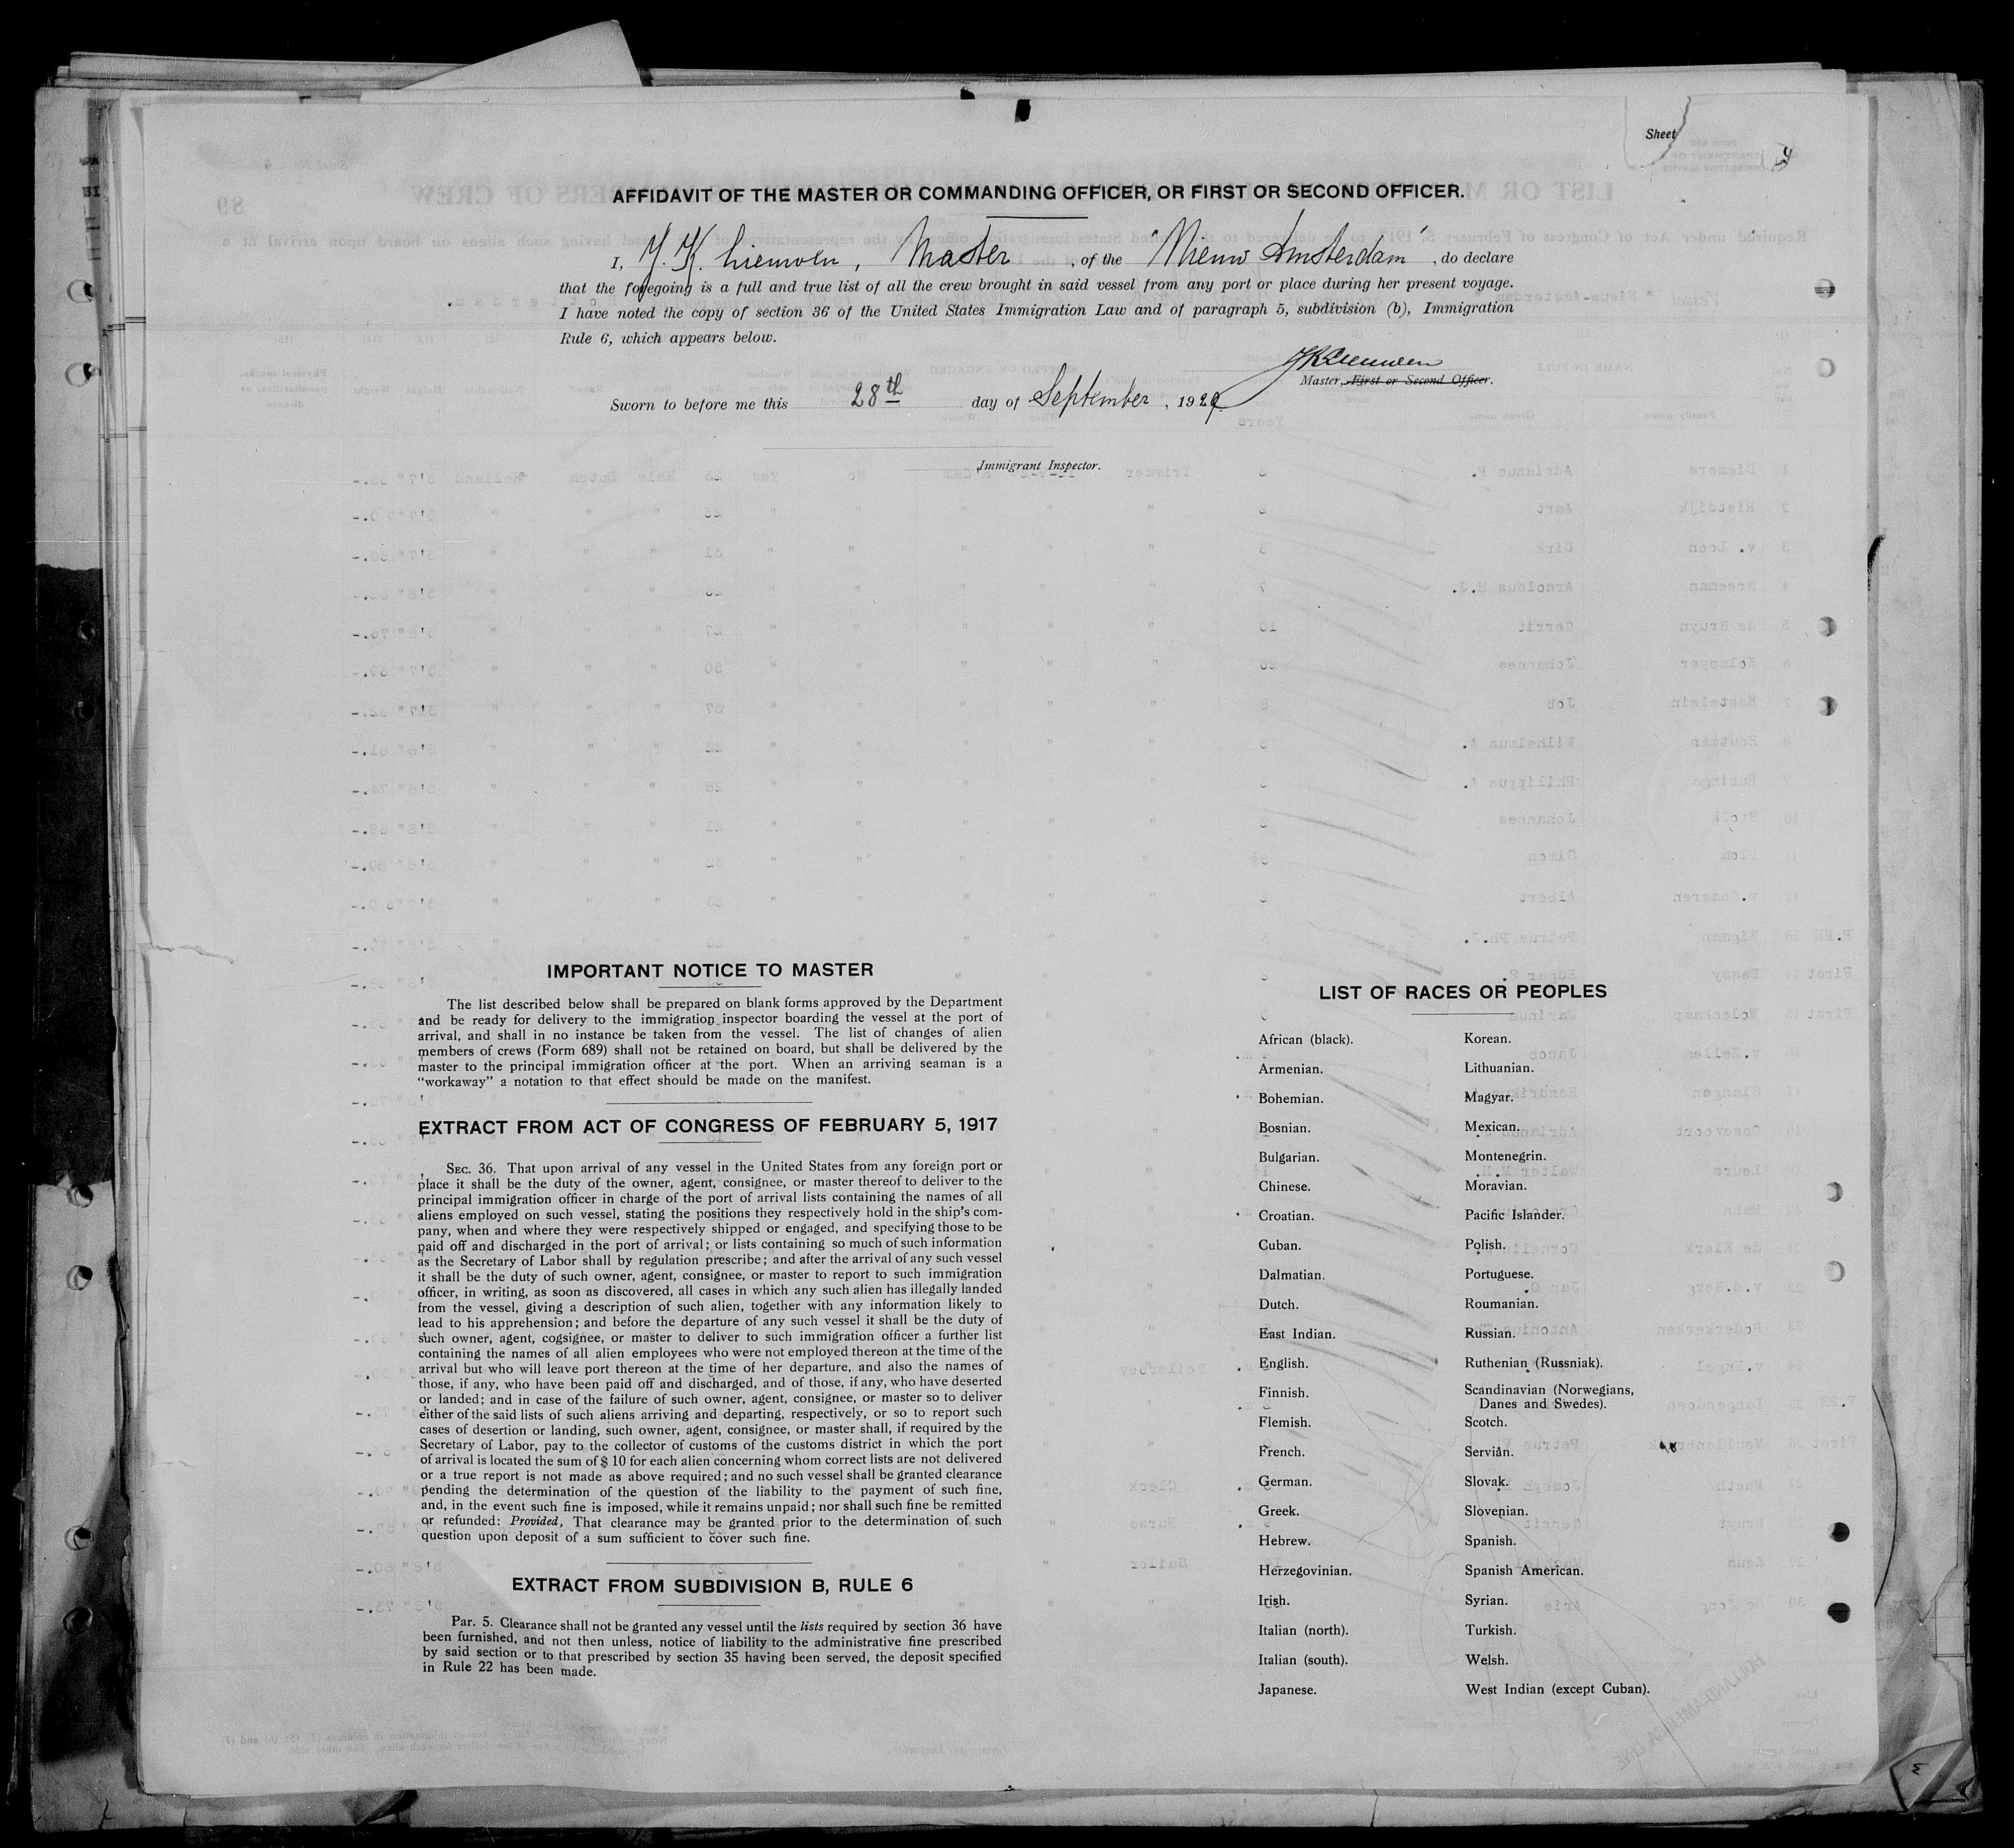 Sheet
AFFIDAVIT OF THE MASTER OR COMMANDING OFFICER, OR FIRST OR SECOND OFFICER.
I, Master, of the "Nieuw Amsterdam", do declare
that the foregoing is a full and true list of all the crew brought in said vessel from any port or place during her present voyage.
I have noted the copy of section 36 of the United States Immigration Law and of paragraph 5, subdivision (b), Immigration
Rule 6, which appears below.
Master, First or Second Officer.
Sworn to before me this 28th day of September, 192
Immigrant Inspector.
IMPORTANT NOTICE TO MASTER
The list described below shall be prepared on blank forms approved by the Department
and be ready for delivery to the immigration inspector boarding the vessel at the port of
arrival, and shall in no instance be taken from the vessel. The list of changes of alien
members of crews (Form 689) shall not be retained on board, but shall be delivered by the
master to the principal immigration officer at the port. When an arriving seaman is a
"workaway" a notation to that effect should be made on the manifest.
EXTRACT FROM ACT OF CONGRESS OF FEBRUARY 5, 1917
SEC. 36. That upon arrival of any vessel in the United States from any foreign port or
place it shall be the duty of the owner, agent, consignee, or master thereof to deliver to the
principal immigration officer in charge of the port of arrival lists containing the names of all
aliens employed on such vessel, stating the positions they respectively hold in the ship's com-
pany, when and where they were respectively shipped or engaged, and specifying those to be
paid off and discharged in the port of arrival; or lists containing so much of such information
as the Secretary of Labor shall by regulation prescribe; and after the arrival of any such vessel
it shall be the duty of such owner, agent, consignee, or master to report to such immigration
officer, in writing, as soon as discovered, all cases in which any such alien has illegally landed
from the vessel, giving a description of such alien, together with any information likely to
lead to his apprehension; and before the departure of any such vessel it shall be the duty of
such owner, agent, cogsignee, or master to deliver to such immigration officer a further list
containing the names of all alien employees who were not employed thereon at the time of the
arrival but who will leave port thereon at the time of her departure, and also the names of
those, if any, who have been paid off and discharged, and of those, if any, who have deserted
or landed; and in case of the failure of such owner, agent, consignee, or master so to deliver
either of the said lists of such aliens arriving and departing, respectively, or so to report such
cases of desertion or landing, such owner, agent, consignee, or master shall, if required by the
Secretary of Labor, pay to the collector of customs of the customs district in which the port
of arrival is located the sum of $ 10 for each alien concerning whom correct lists are not delivered
or a true report is not made as above required; and no such vessel shall be granted clearance
pending the determination of the question of the liability to the payment of such fine,
and, in the event such fine is imposed, while it remains unpaid; nor shall such fine be remitted
or refunded: Provided, That clearance may be granted prior to the determination of such
question upon deposit of a sum sufficient to cover such fine.
EXTRACT FROM SUBDIVISION B, RULE 6
Par. 5. Clearance shall not be granted any vessel until the lists required by section 36 have
been furnished, and not then unless, notice of liability to the administrative fine prescribed
by said section or to that prescribed by section 35 having been served, the deposit specified
in Rule 22 has been made.
LIST OF RACES OR PEOPLES
African (black).
Armenian.
Bohemian.
Bosnian.
Bulgarian.
Chinese.
Croatian.
Cuban.
Dalmatian.
Dutch.
East Indian.
English.
Finnish.
Flemish.
French.
German.
Greek.
Hebrew.
Herzegovinian.
Irish.
Italian (north).
Italian (south).
Japanese.
Korean.
Lithuanian.
Magyar.
Mexican.
Montenegrin.
Moravian.
Pacific Islander.
Polish.
Portuguese.
Roumanian.
Russian.
Ruthenian (Russniak).
Scandinavian (Norwegians,
Danes and Swedes).
Scotch.
Servian.
Slovak.
Slovenian.
Spanish.
Spanish American.
Syrian.
Turkish.
Welsh.
West Indian (except Cuban).